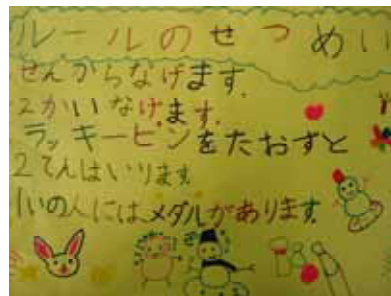 ルールのせつめい
せんからなげます。
2かいなげます。
ラッキーピンをたおすと
2てんはいります
1いの人にはメダルがあります。